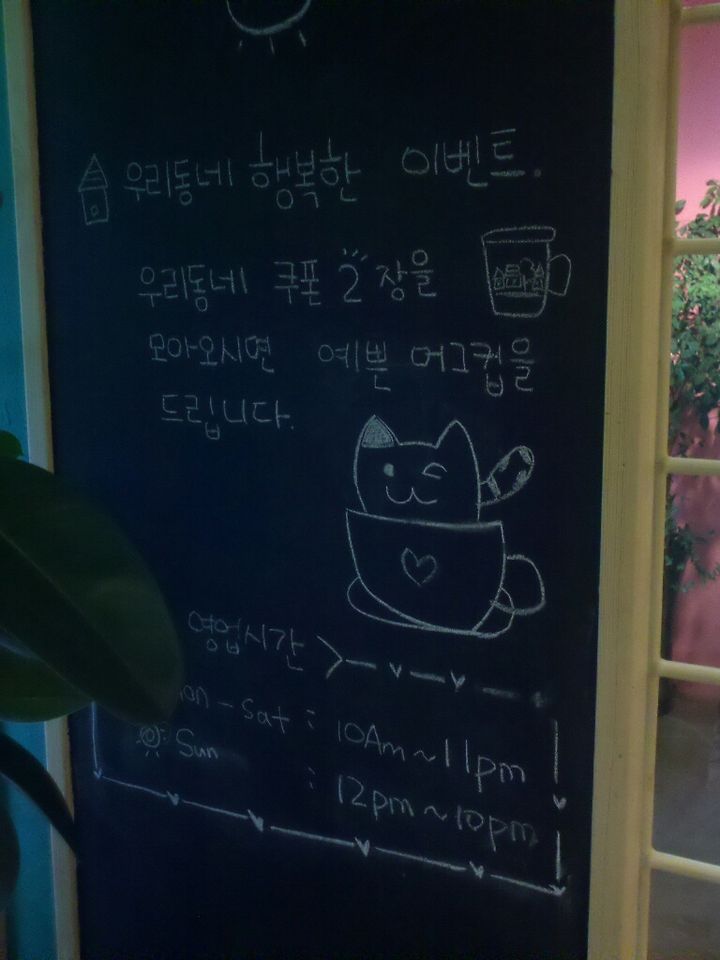 우리동네 행복한 이벤트.
우리동네 쿠폰 2장을
모아오시면 예쁜 머그컵을
드립니다.
영업시간
Mon - Sat : 10Am ~ 11pm
Sun : 12pm ~ 10pm